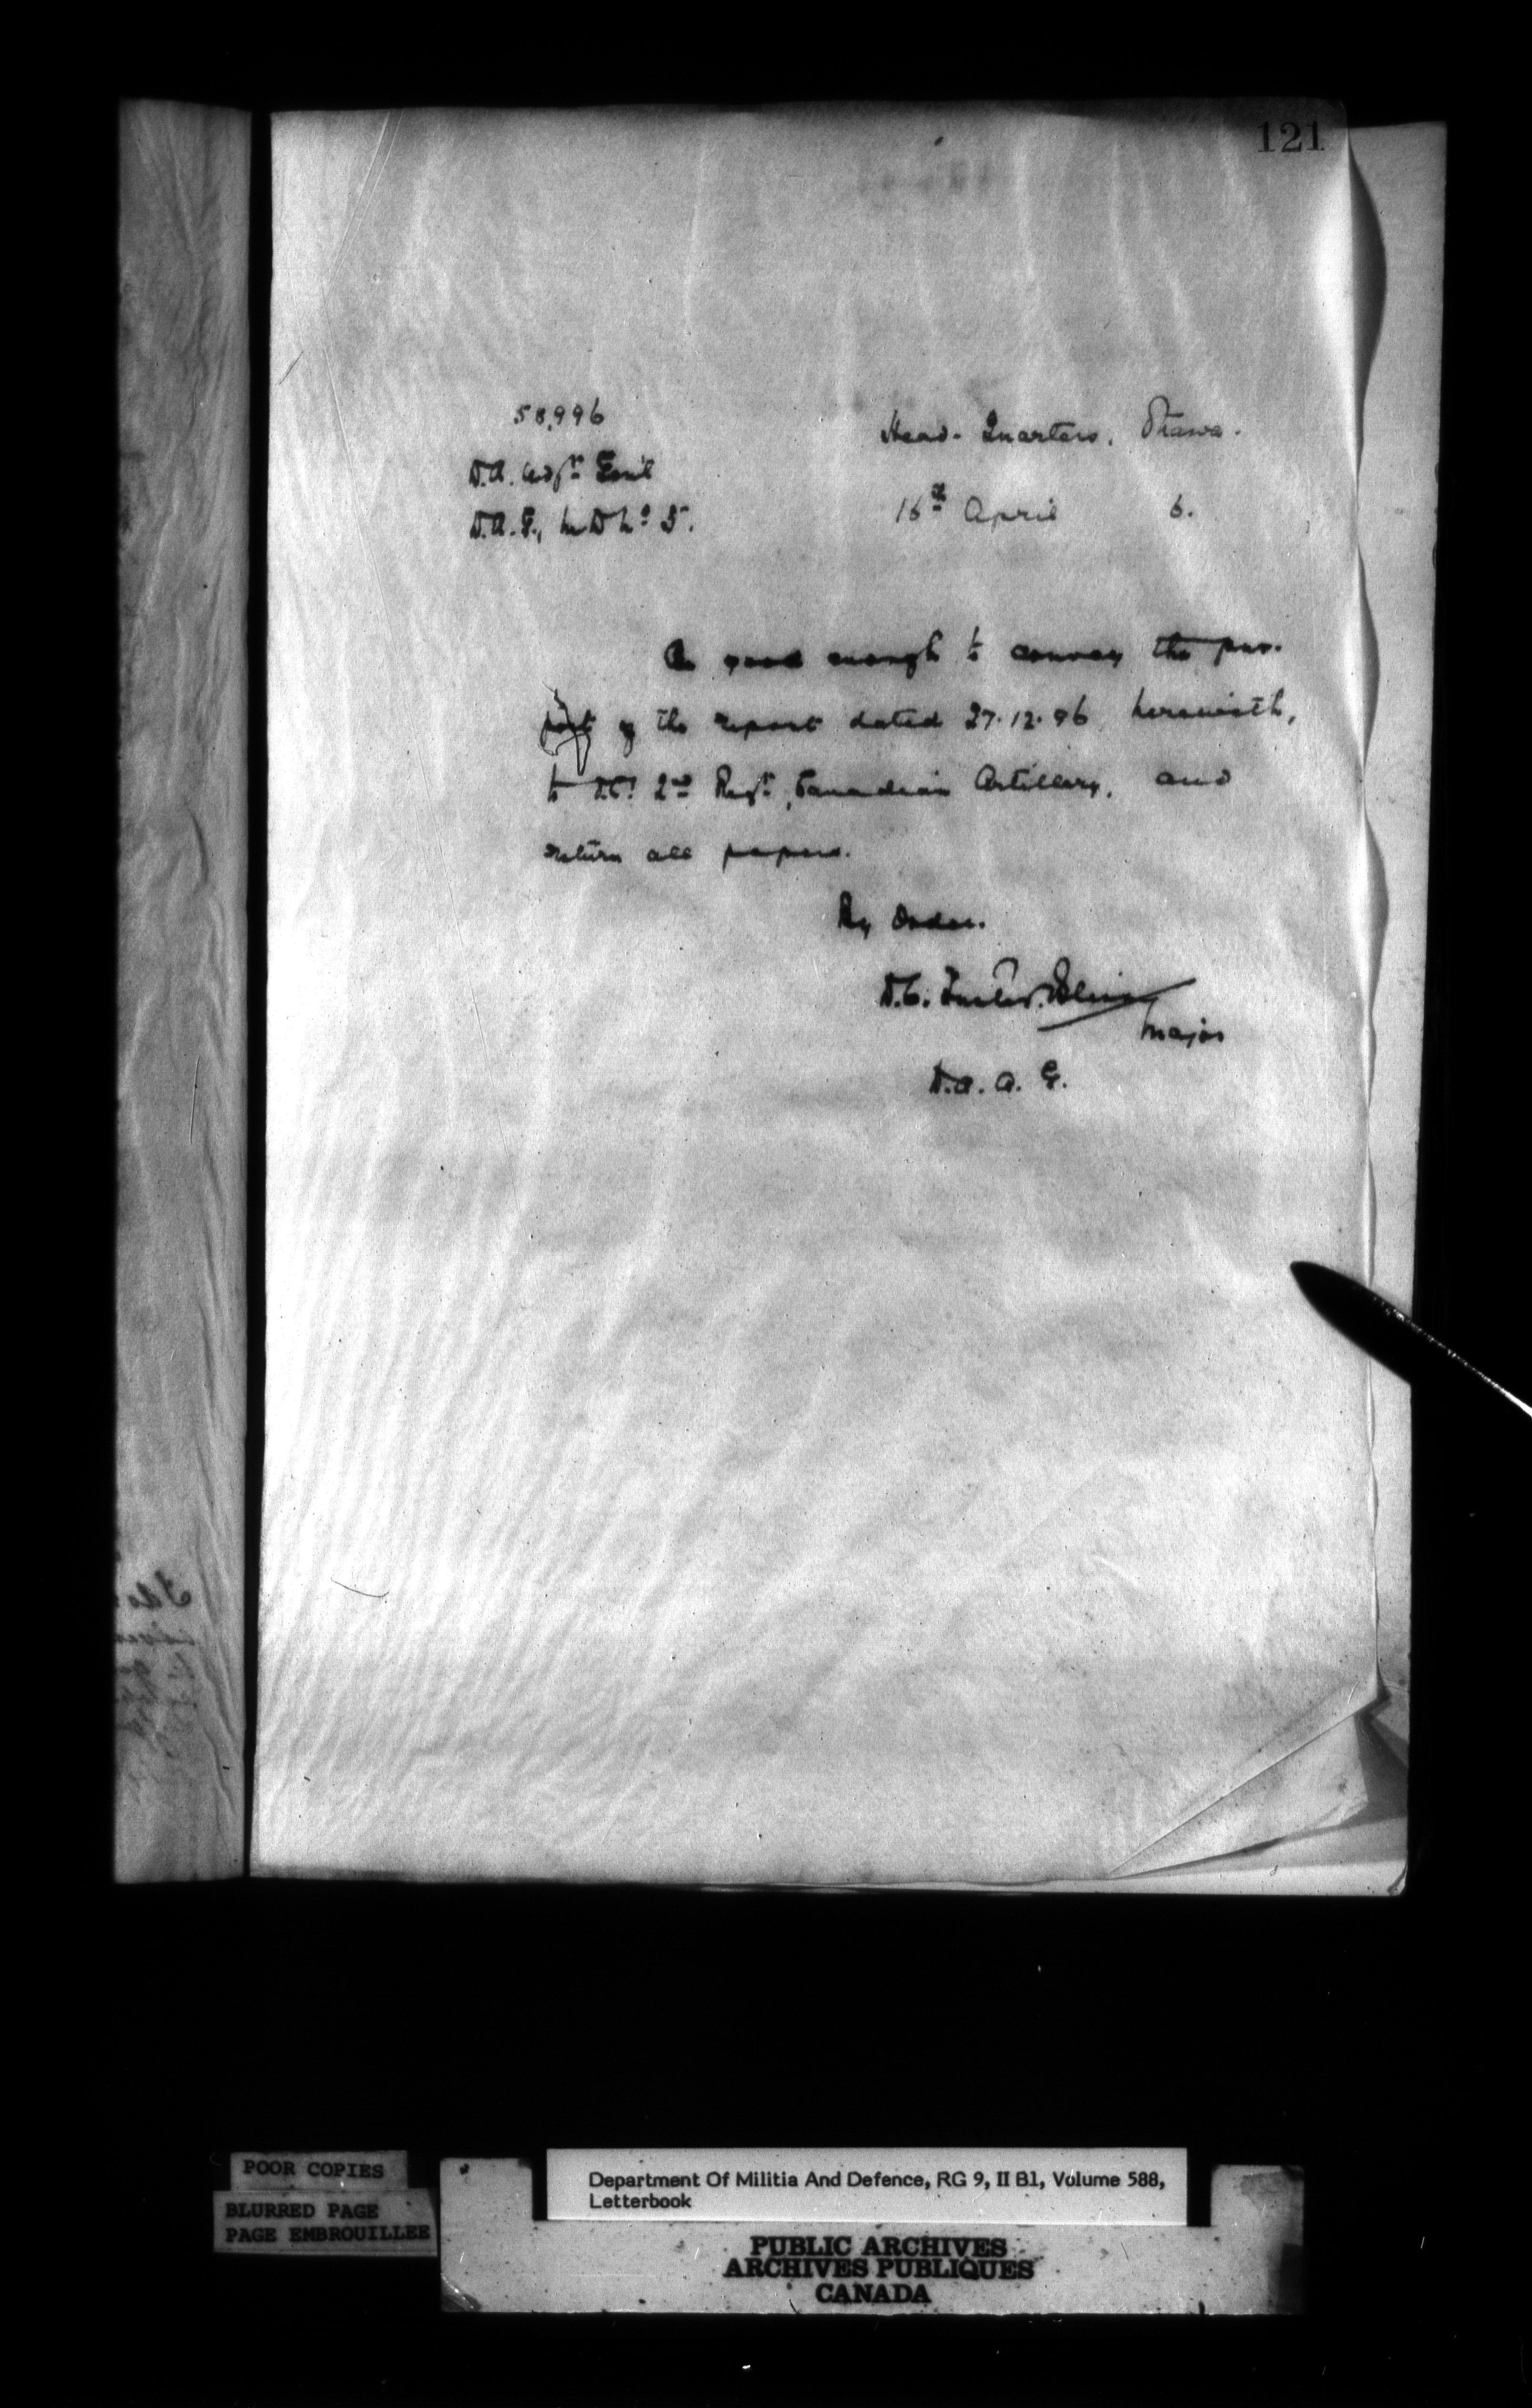 121
58,996
Head-Quarters, Ottawa.
D.A. Adjt. Genl
16th April 6.
D.A.G., M D No 5.
Be good enough to convey the pur-
port of the report dated 27.12.96 herewith,
to O.C. 2nd Regt. Canadian Artillery, and
return all papers.
By Order.
D.C.
Major
D.A.A.G.
POOR COPIES
BLURRED PAGE
PAGE EMBROUILLEE
Department Of Militia And Defence, RG 9, II B1, Volume 588,
Letterbook
PUBLIC ARCHIVES
ARCHIVES PUBLIQUES
CANADA